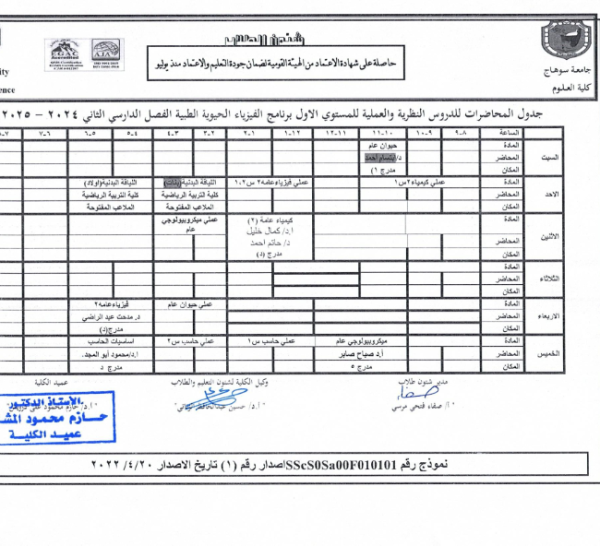 شئون الطلاب
حاصلة على شهادة الاعتماد من الهيئة القومية لضمان جودة التعليم والاعتماد منذ يوليو
جامعة سوهاج
كلية العلوم
جدول المحاضرات للدروس النظرية والعملية للمستوي الاول برنامج الفيزياء الحيوية الطبية الفصل الدارسي الثاني ٢٠٢٤ – ٢٠٢٥
الساعة ٩-٨ ١٠-٩ ١١-١٠ ١٢-١١ ١-١٢ ٢-١ ٣-٢ ٤-٣ ٥-٤ ٦-٥ ٧-٦
السبت
المادة حيوان عام
المحاضر
المكان مدرج ١)
الاحد
المادة عملي كيمياء٢س١ عملي فيزياءعامة٢ س٢،١ اللياقة البدنية(بنات) اللياقة البدنية(اولاد)
المحاضر كلية التربية الرياضية كلية التربية الرياضية
المكان الملاعب المفتوحة الملاعب المفتوحة
الاثنين
المادة كيمياء عامة (٢) عملي ميكروبيولوجي عام
المحاضر أ.د/ كمال خليل
د/ حاتم احمد
المكان مدرج (د)
الثلاثاء
المادة
المحاضر
المكان
الاربعاء
المادة عملي حيوان عام فيزياءعامه٢
المحاضر د. مدحت عبد الراضي
المكان مدرج(د)
الخميس
المادة ميكروبيولوجي عام عملي حاسب س١ عملي حاسب س٢ اساسيات الحاسب
المحاضر أ.د صباح صابر أ.د/محمود أبو المجد.
المكان مدرج ٥ مدرج د
مدير شئون طلاب
وكيل الكلية لشئون التعليم والطلاب
عميد الكلية
" أ/ صفاء فتحي مرسي
الأستاذ الدكتور
حازم محمود
عميد الكلية
نموذج رقم SScS0Sa00F010101اصدار رقم (١) تاريخ الاصدار ٢٠٢٢/٤/٢٠